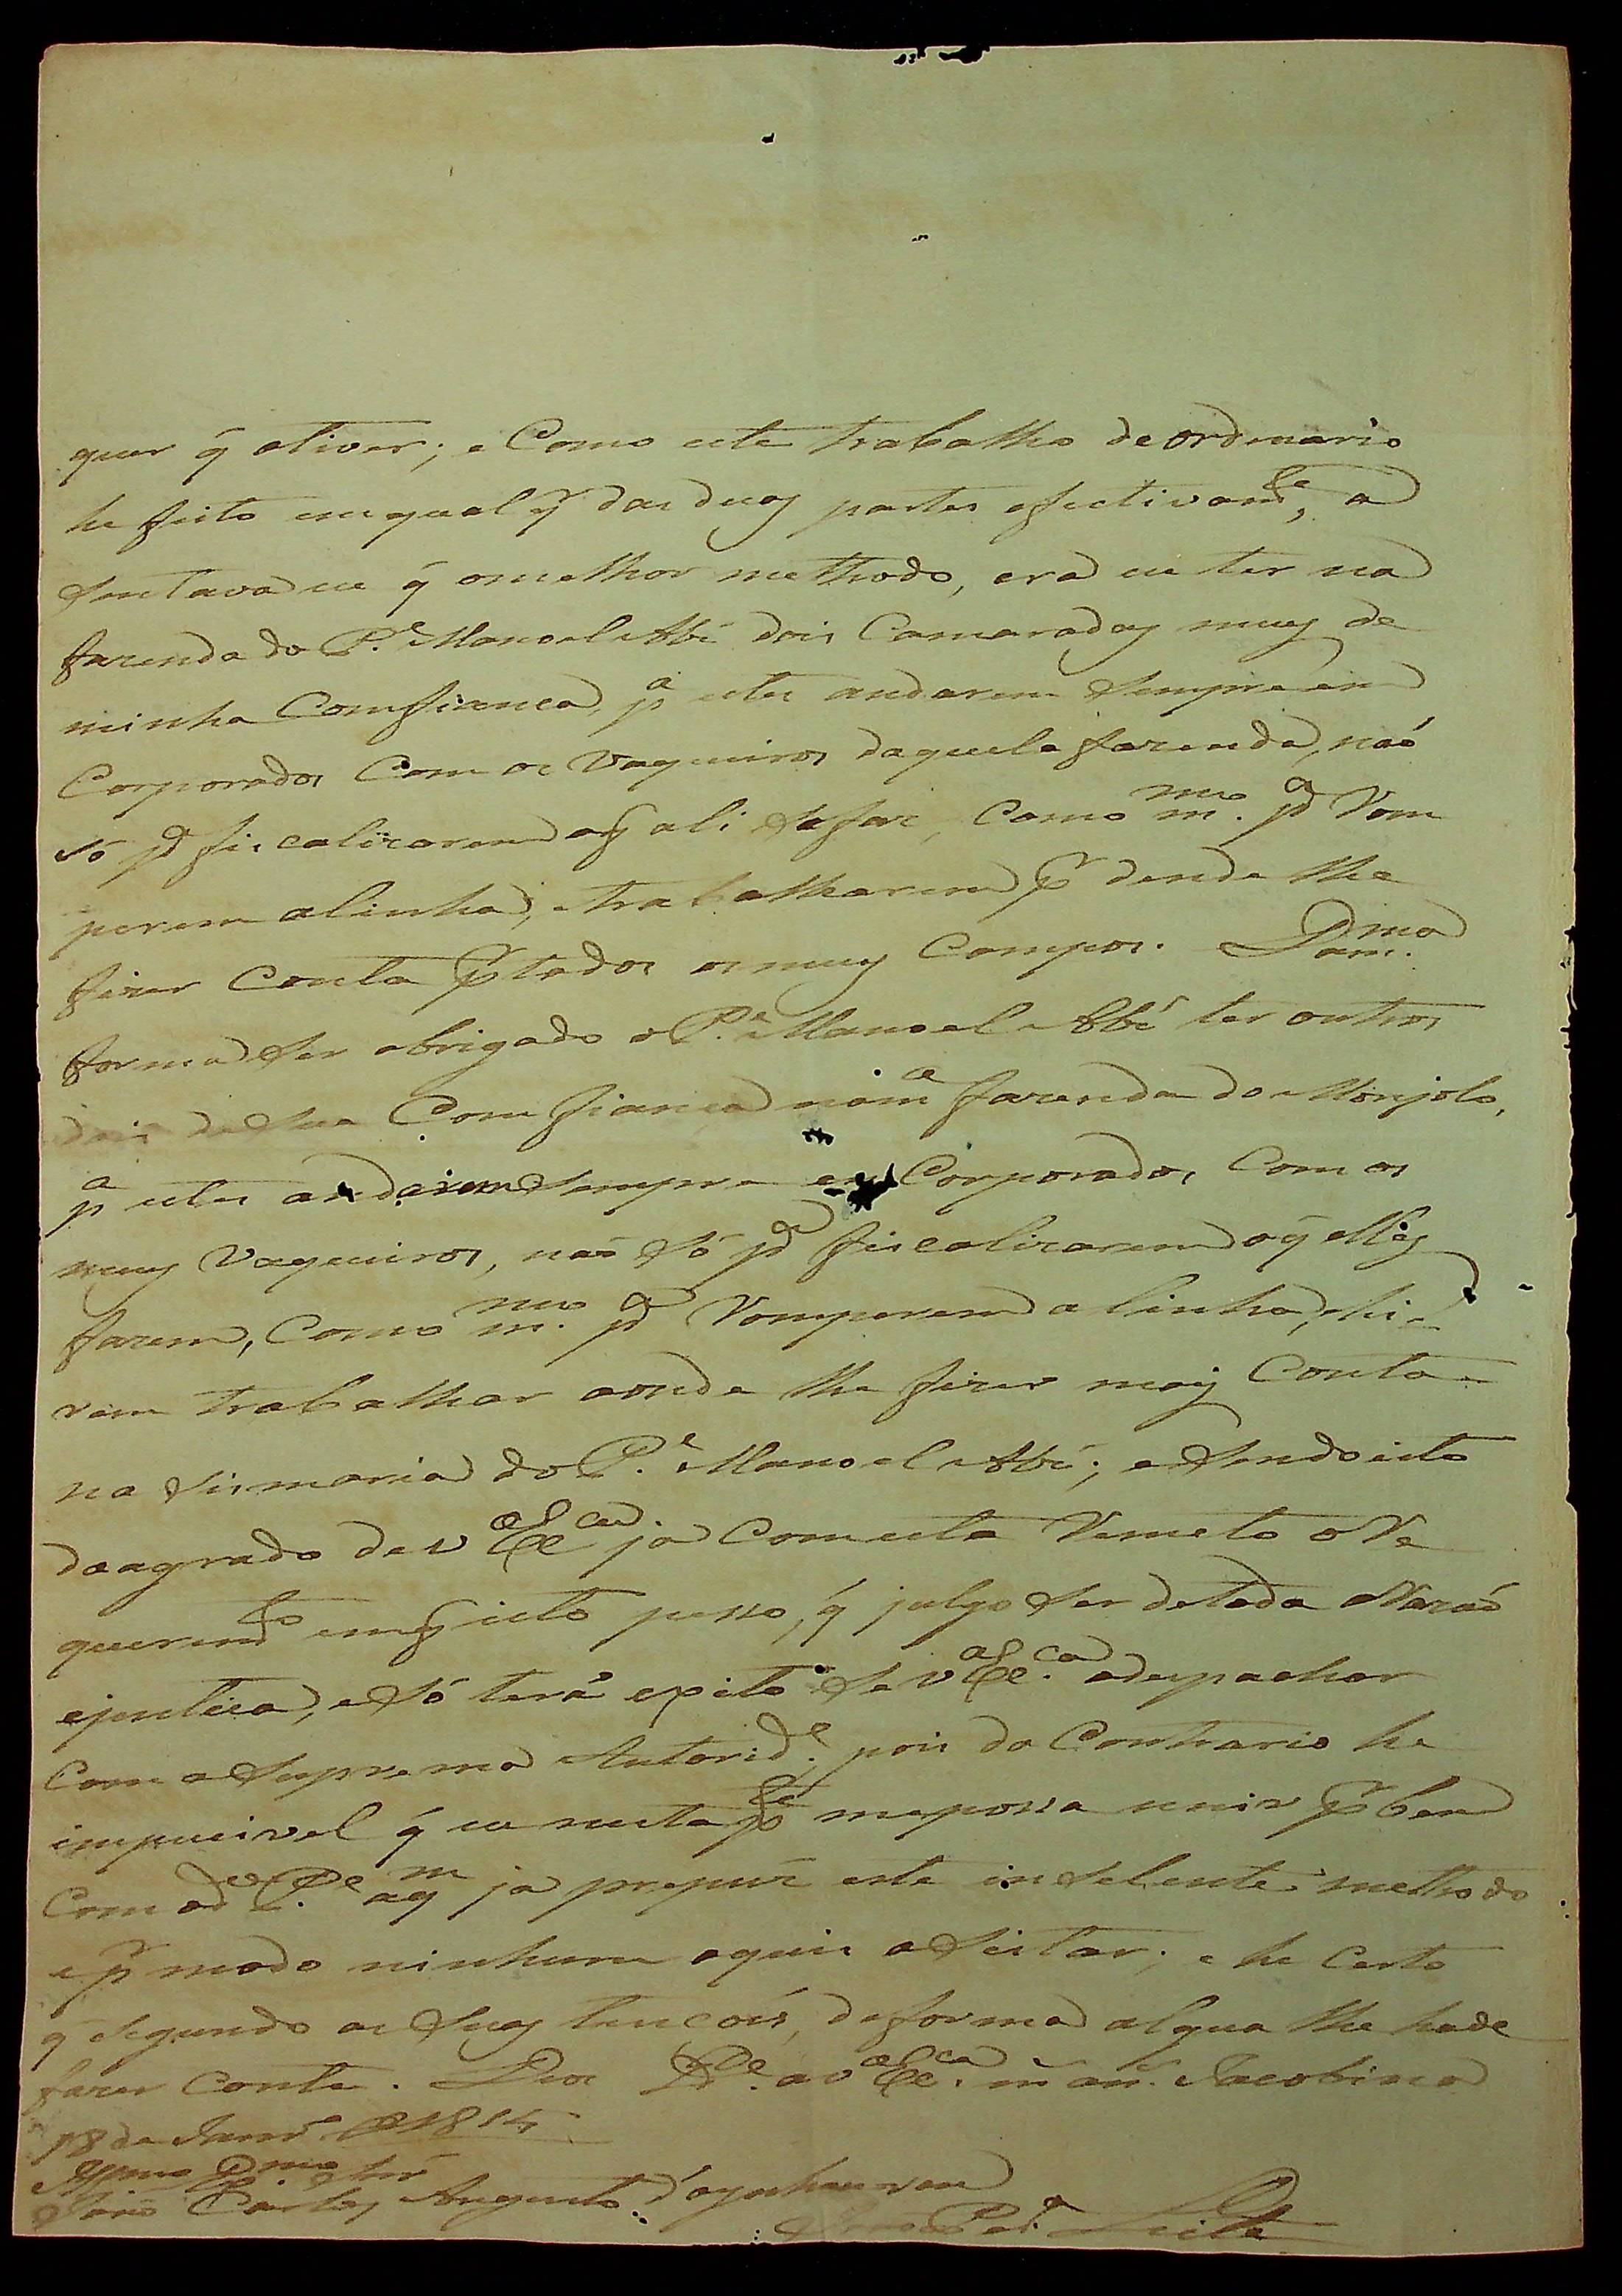 quer q̃ otiver; e Como este trabalho de ordinario
he feito em qual qr das duas partes efectivamte, a
sentava eu q̃ omelhor methodo, era eu ter na
fazenda do Pe. Manoel Alz' dois Camaradas meus de
minha Comfianca, pa estes andarem sempre em
Corporados Com os Vaqueiros daquela fazenda, naõ
só pa fiscalizarem oq̃ ali sefaz, Como mmo. pa Rom
perem alinha, etrabalharem pr donde lhe
fizer Conta pr todos os meus Campos. Da mma.
forma ser obrigado o Pe. Manoel Alz' ter outros
dois de sua Comfianca na ma fazenda do Monjolo,
pa estes andarem sempre em Corporados Com os
meus Vaqueiros, naõ só pa fiscalizarem oq̃ Elles
fazem, Como mmo. pa Romperem alinha, e hi
rem trabalhar aonde lhe fizer mais Conta
na sismaria do Pe. Manoel Alz'; e sendo isto
do agrado de V Exca. ja Com esta Remeto o Re
querimto em q̃ isto pesso, q̃ julgo ser detoda Razaõ
ejustica, e só terá expito se V Exca. odespachar
Com a suprema Autoride. pois do Contrario he
impucivel q̃ eu nesta pte me possa unir pr bem
Com od Pe. aqm ja propuz este inselente methodo
e pr modo ninhum oquis aseitar; e he Certo
q̃ segundo as suas tencois, deforma algua lhe hade
fazer Conta. Deos Gde. a V Exca. m an. Jacobina
18 de Janro de 1815
Illmo Exmo. Snr
Joaõ Carlos Augusto d'oynhausen
Joao Pera Leite